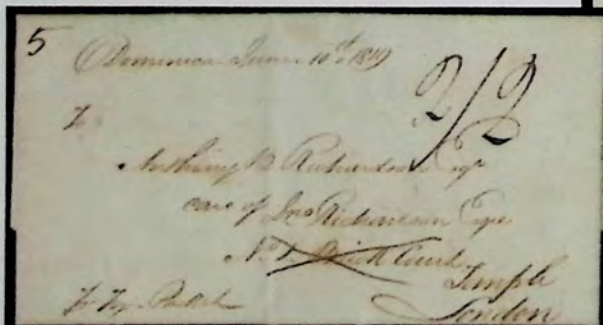 5
Dominica June 10th 1819
2/2
To
Anthony B Richardson Esqr
care of Jno Richardson Esqr
No 1 Brick Court
Temple
London